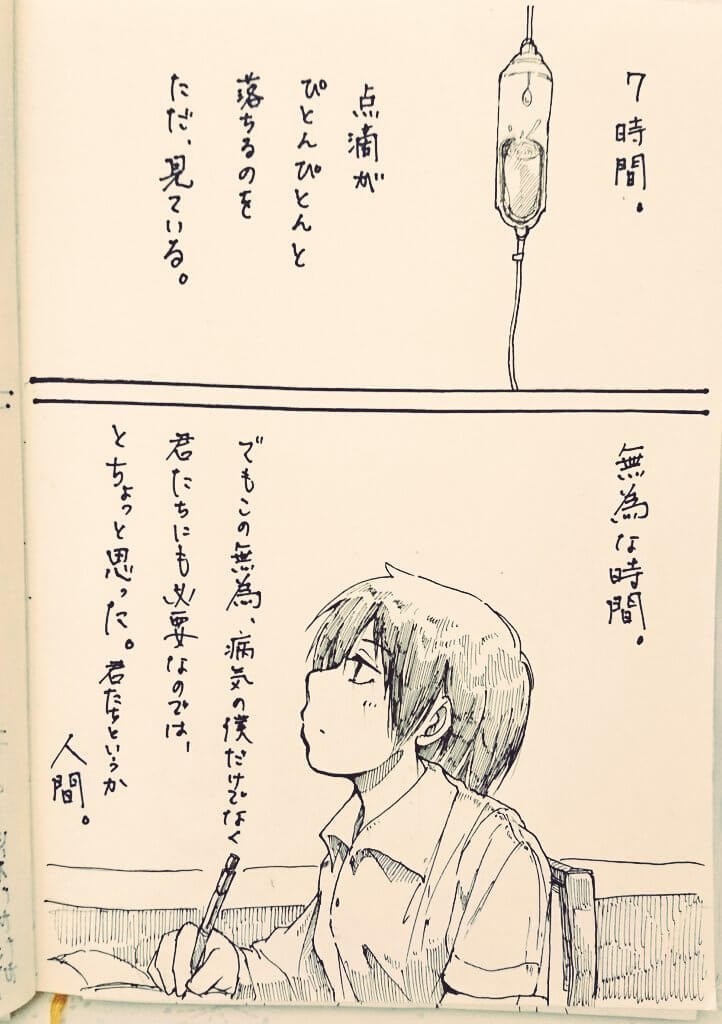 7時間。
点滴が
ぴとんぴとんと
落ちるのを
ただ、見ている。
無為な時間。
でもこの無為、病気の僕だけでなく
君たちにも必要なのでは、
とちょっと思った。君たちというか
人間。